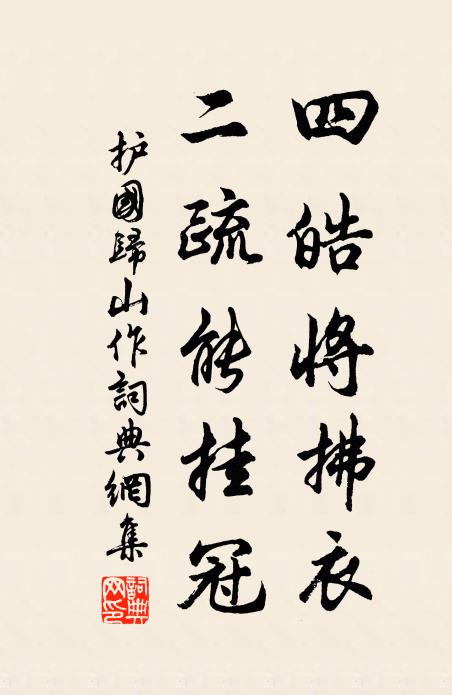 四皓將拂衣
二疏能挂冠
护國歸山作詞典網集
詞典網印